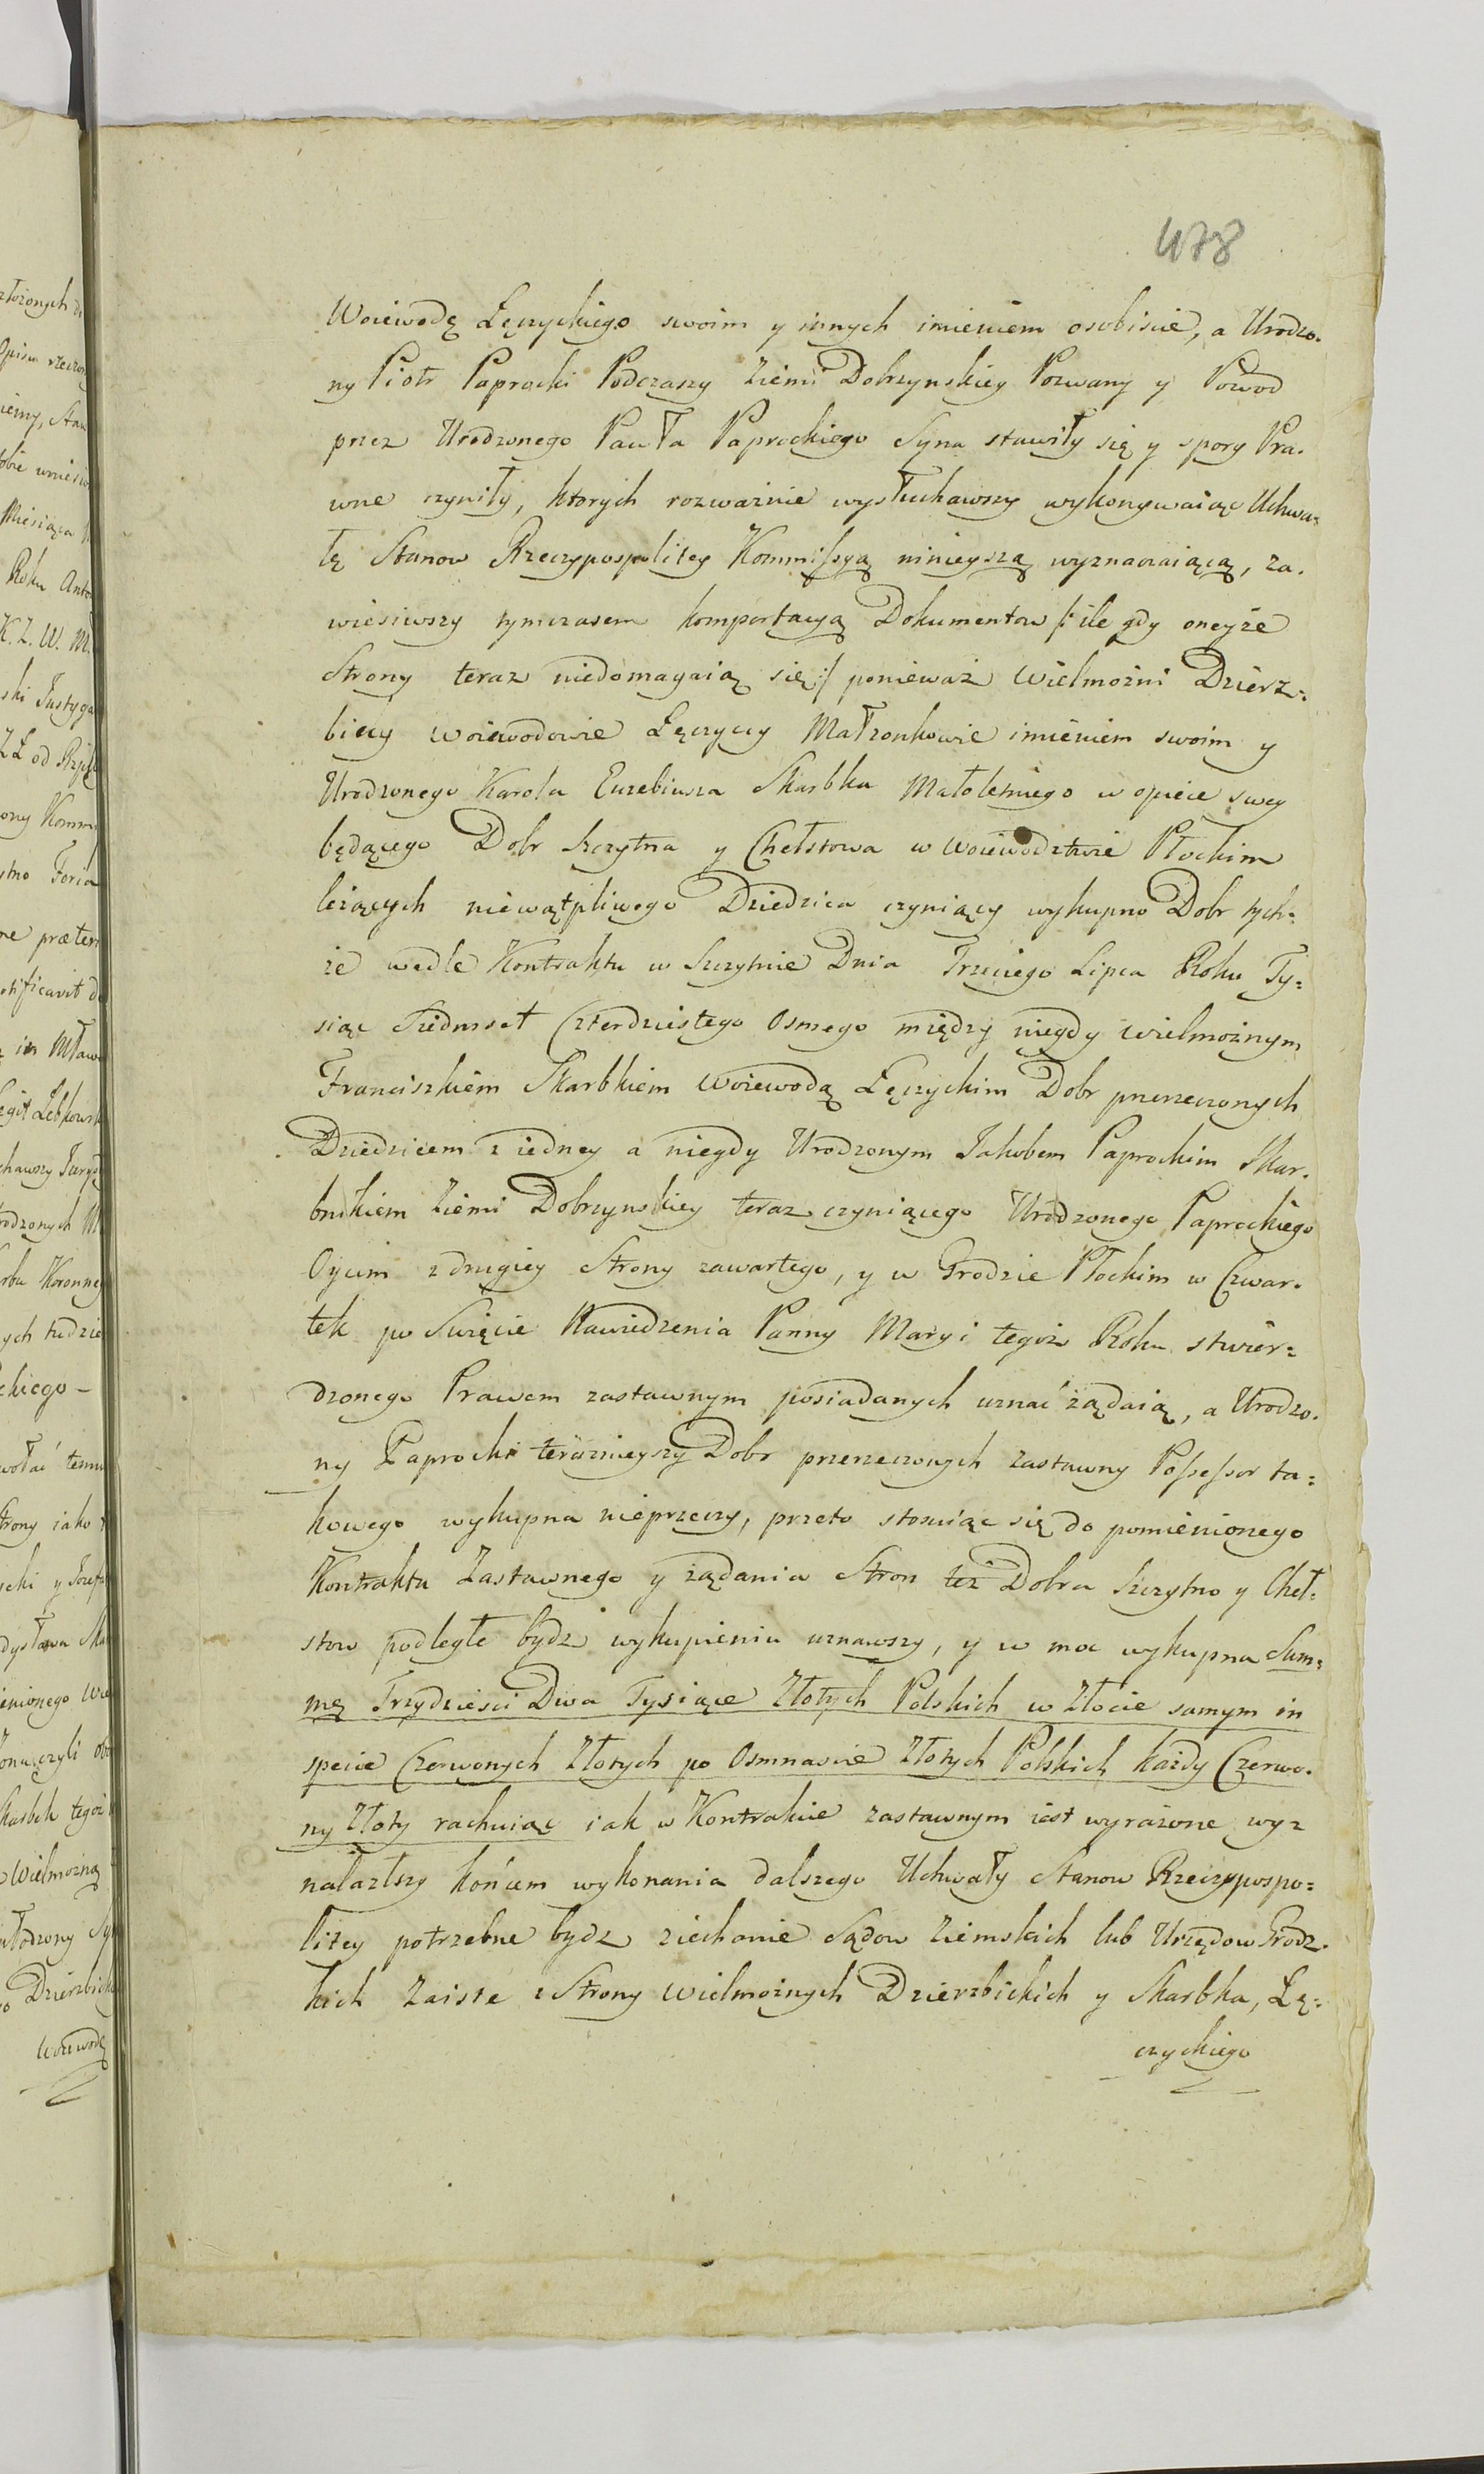 478
Woiewodę Łęczyckiego swoim y innych imieniem osobiscie, a Urodzo.
ny Piotr Paprocki Podczaszy Ziemi Dobrzynskiey Pozwany y Powod
przez Urodzonego Pawła Paprockiego Syna stawiły się y spory Pra.
wne czyniły, ktorych rozwaźnie wysłuchawszy wykonywaiąc Uchwa=
łę Stanow Rzeczypospolitey Kommissyą ninieyszą wyznaczaiącą, za.
wiesiwszy tymczasem komportacyą Dokumentow /: ile gdy oneyże
Strony teraz niedomagaią się :/ ponieważ Wielmożni Dzierz=
biccy Woiewodowie Łęczyccy Małżonkowie imieniem swoim y
Urodzonego Karola Euzebiusza Skarbka Małoletniego w opiece swey
będącego Dobr Szczytna y Chełstowa w Woiewodztwie Płockim
leżących niewątpliwego Dziedzica czyniący wykupno Dobr tych=
że wedle Kontraktu w Szczytnie Dnia Trzeciego Lipca Roku Ty=
siąc Siedmset Czterdziestego Osmego między niegdy Wielmożnym
Franciszkiem Skarbkiem Woiewodą Łęczyckim Dobr przerzeczonych
Dziedzicem z iedney a niegdy Urodzonym Jakobem Paprockim Skar.
bnikiem Ziemi Dobrzynskiey teraz czyniącego Urodzonego Paprockiego
Oycem z drugiey Strony zawartego, y w Grodzie Płockim w Czwar.
tek po Swięcie Nawiedzenia Panny Maryi tegoż Roku stwier=
dzonego Prawem zastawnym posiadanych uznać żądaią, a Urodzo.
ny Paprocki teraznieyszy Dobr przerzeczonych zastawny Possessor ta=
kowego wykupna nieprzeczy, przeto stosuiąc się do pomienionego
Kontraktu Zastawnego y żądania Stron też Dobra Szczytno y Cheł=
stow podległe bydz wykupieniu uznawszy, y w moc wykupna Sum=
mę Trzydziesci Dwa Tysiące Złotych Polskich w Złocie samym in
specie Czerwonych Złotych po Osmnascie Złotych Polskich każdy Czerwo.
ny Złoty rachuiąc iak w Kontrakcie zastawnym iest wyrażone wy=
nalazłszy końcem wykonania dalszego Uchwały Stanow Rzeczypospo=
litey potrzebne bydz ziechanie Sądow Ziemskich lub Urzędow Grodz.
kich Zaiste z Strony Wielmożnych Dzierzbickich y Skarbka, Łę=
czyckiego